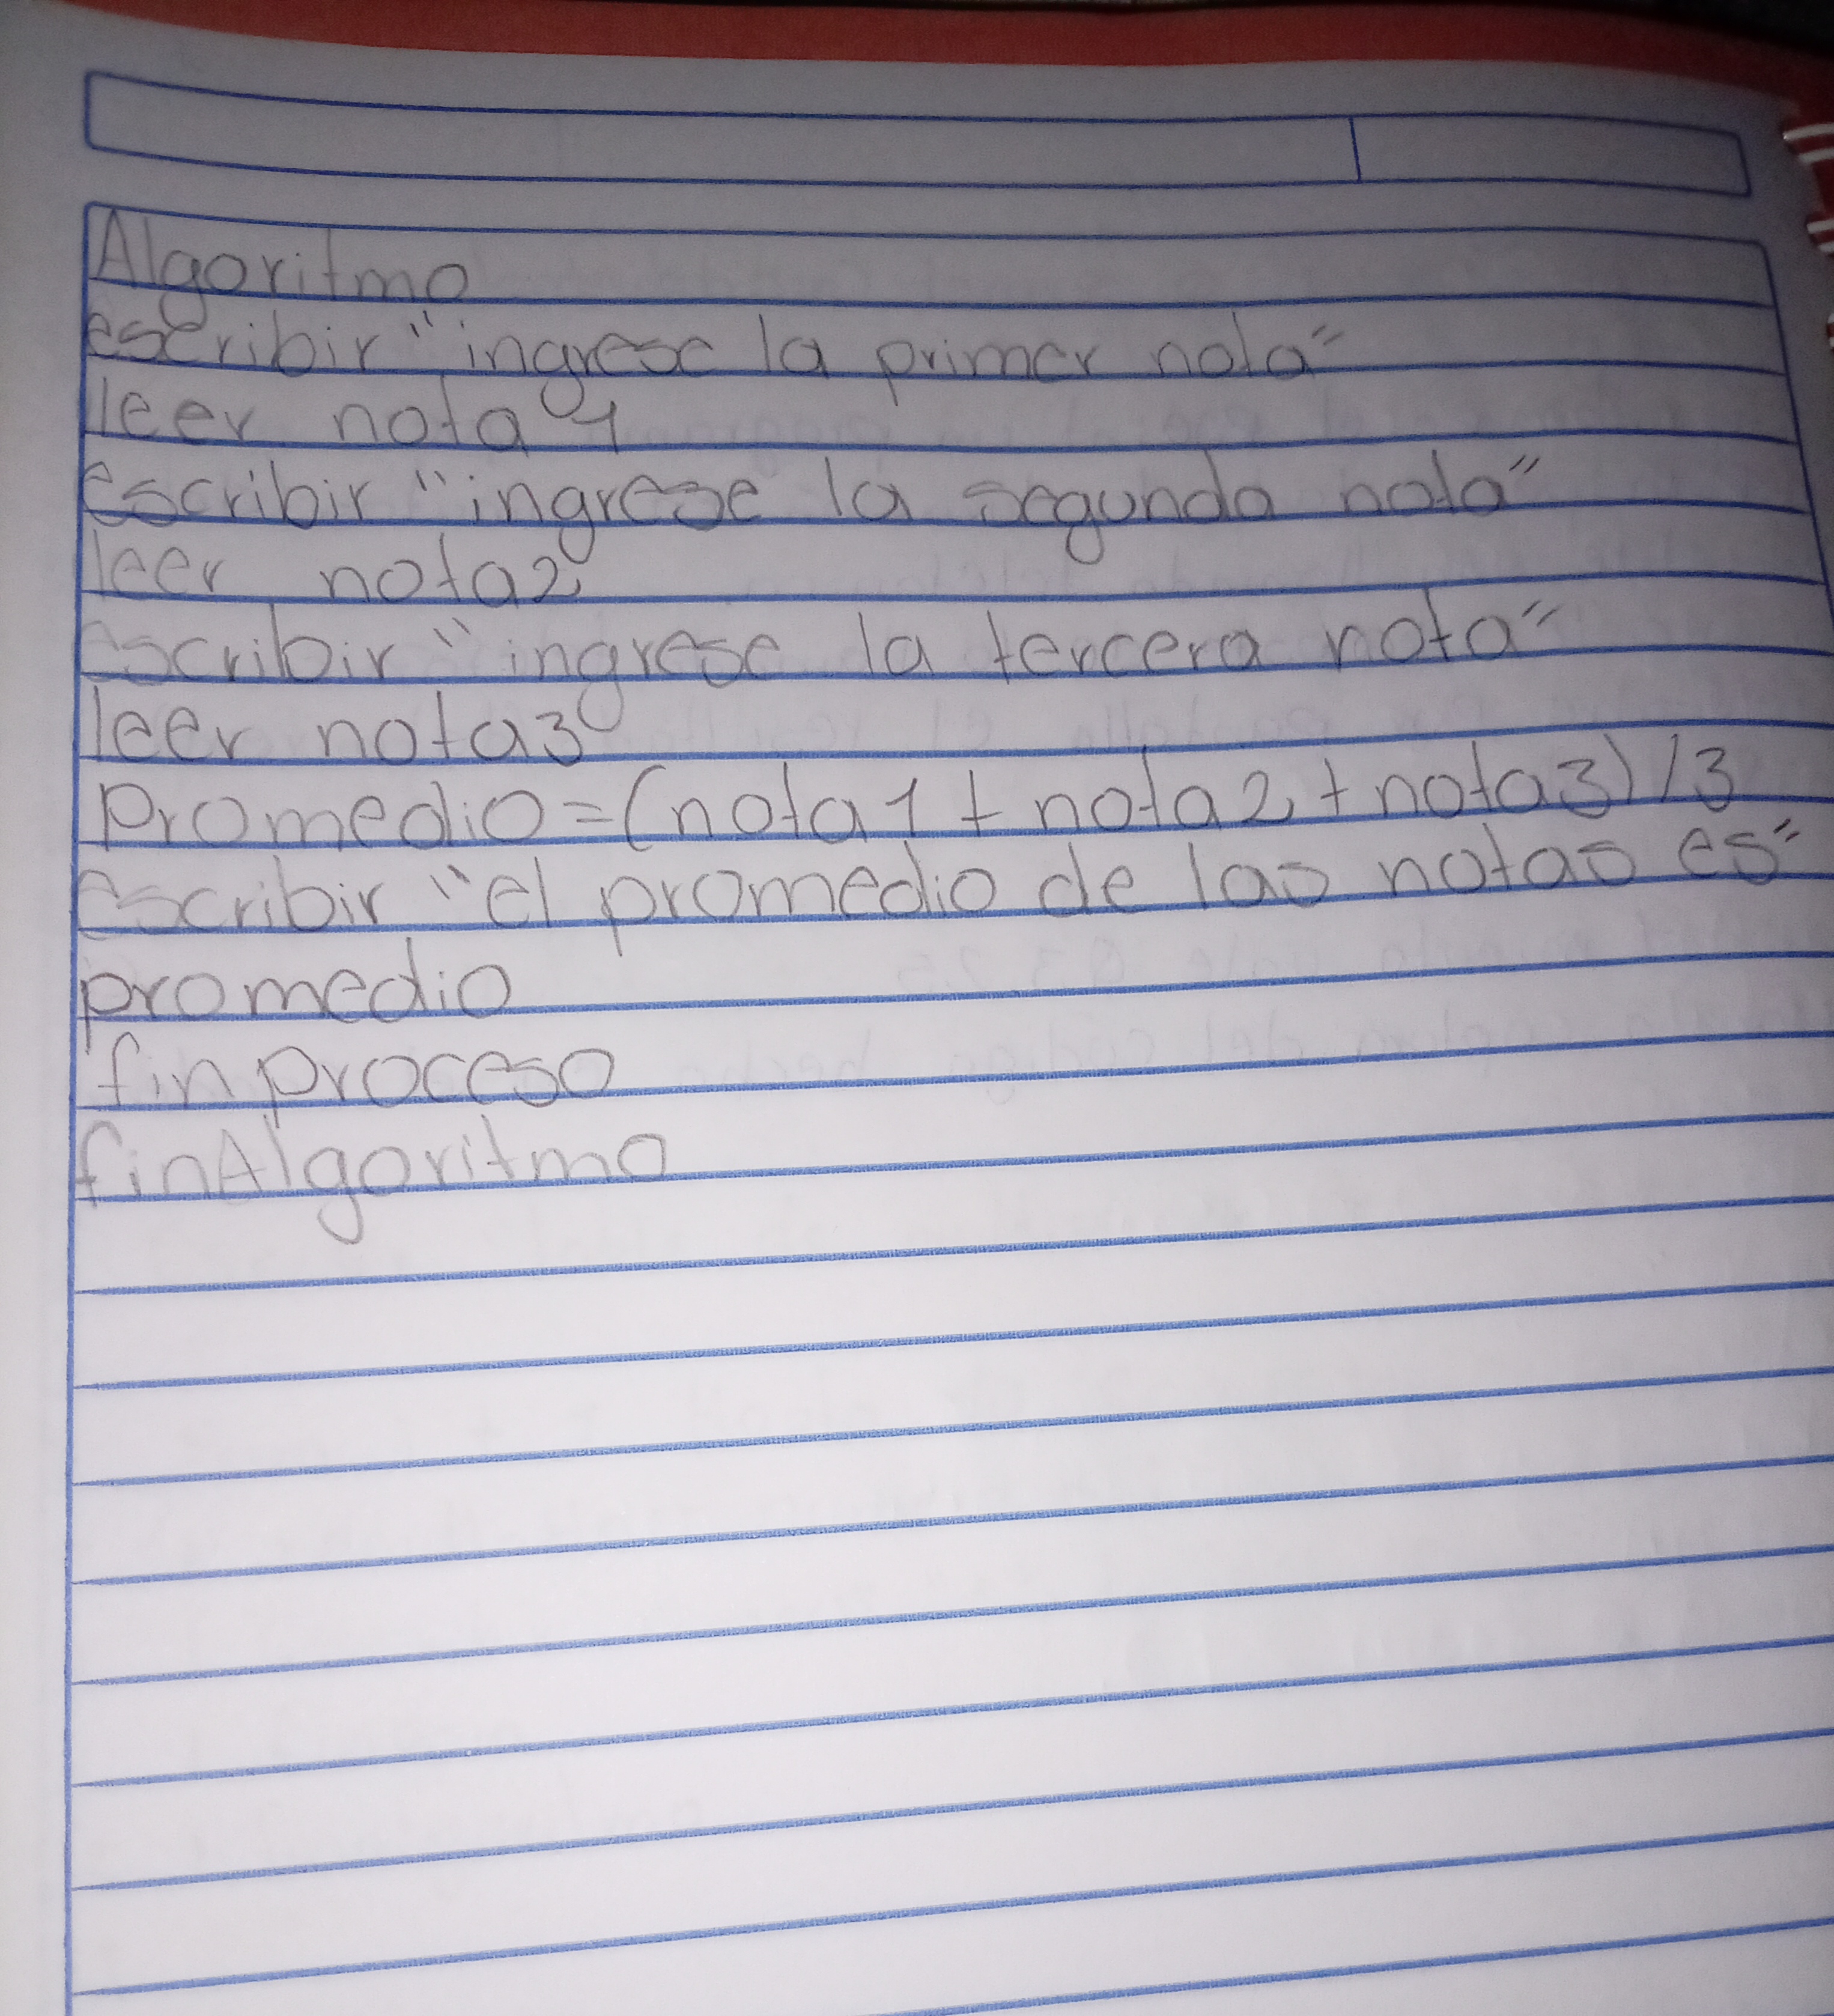 Algoritmo
escribir "ingrese la primer nota"
leer nota 1
escribir "ingrese la segunda nota"
leer nota2
escribir "ingrese la tercera nota"
leer nota3
Promedio=(nota1+nota2+nota3)/3
escribir "el promedio de las notas es"
promedio
finproceso
finAlgoritmo